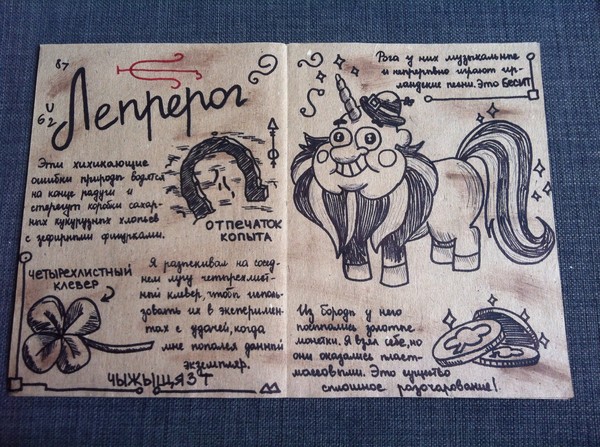 87
62
Лепрерог
Эти хихикающие
ошибки природы водятся
на конце радуги и
стерегут коробки сахар-
ных кукурузных хлопьев
с зефирными фигурками.
ОТПЕЧАТОК
КОПЫТА
ЧЕТЫРЕХЛИСТНЫЙ
КЛЕВЕР
Я разыскивал на сосед-
нем лугу четырехлист-
ный клевер, чтобы исполь-
зовать их в эксперимен-
тах с удачей, когда
мне попался данный
экземпляр.
ЧЫЖЫЩЯЗТ
Рога у них музыкальные
и непрерывно играют ир-
ландские песни. Это БЕСИТ
Из бороды у него
посыпались золотые
монетки. Я взял себе, но
они оказались пласт-
массовыми. Это существо
сплошное разочарование!